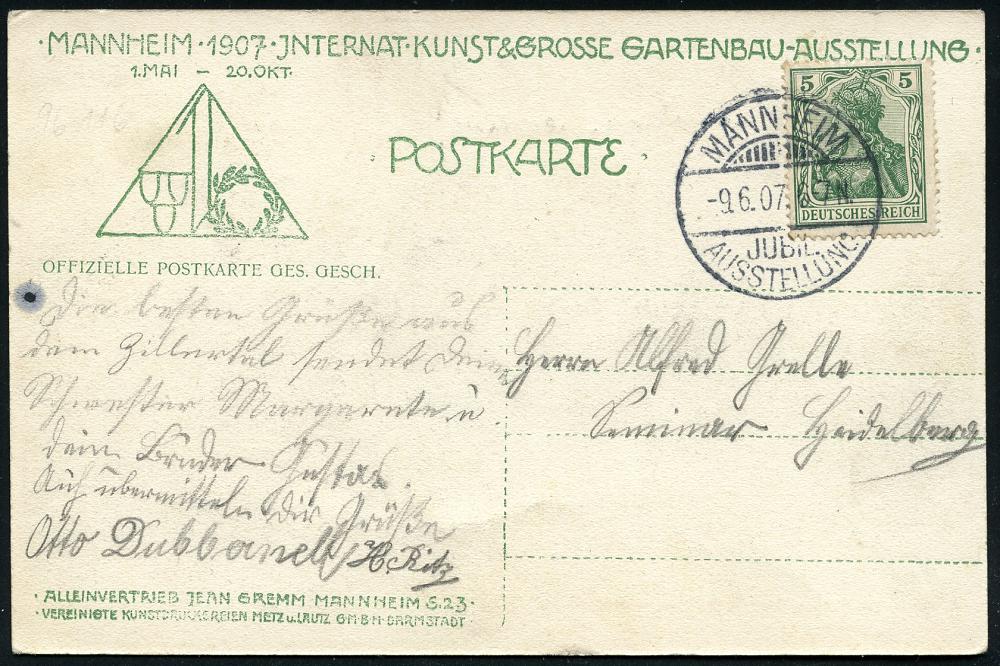 ·MANNHEIM·1907·JNTERNAT·KUNST&GROSSE GARTENBAU-AUSSTELLUNG·
1.MAI – 20.OKT.
POSTKARTE·
5 5
DEUTSCHES REICH
MANNHEIM
-9.6.07. 6-7N.
JUBIL.
AUSSTELLUNG
OFFIZIELLE POSTKARTE GES. GESCH.
Die besten Grüße aus
dem Zillertal sendet Deine
Schwester Margarete u.
dein Bruder Gustav.
Auch übermitteln dir Grüße
Otto H. Ritz
Herrn Alfred Grelle
Seminar Heidelberg
·ALLEINVERTRIEB JEAN GREMM MANNHEIM S.23·
·VEREINIGTE KUNSTDRUCKEREIEN METZ u. LAUTZ G·M·B·H·DARMSTADT·